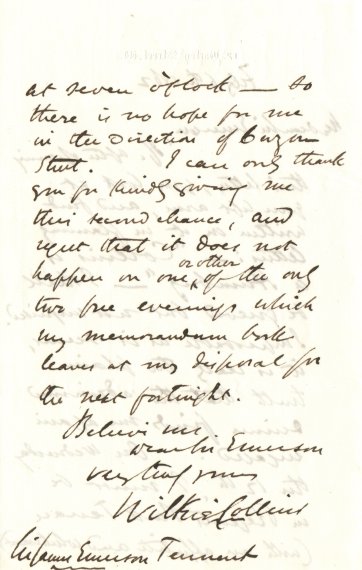 at seven o'clock — so
there is no hope for me
in the Direction of Curzon
Street. I can only thank
you for kindly giving me
this second chance, and
regret that it does not
or other
happen on one, of the only
two free evenings which
my memorandum book
leaves at my disposal for
the next fortnight.
Believe me
dear Sir Emerson
very truly yours
Wilkie Collins
Sir James Emerson Tennent